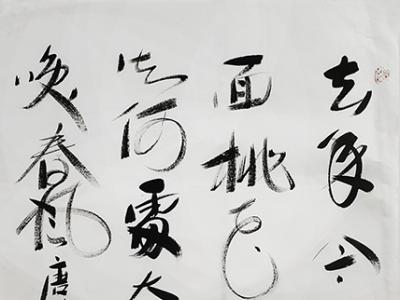 去年今
面桃花
知何處去
咲春風唐